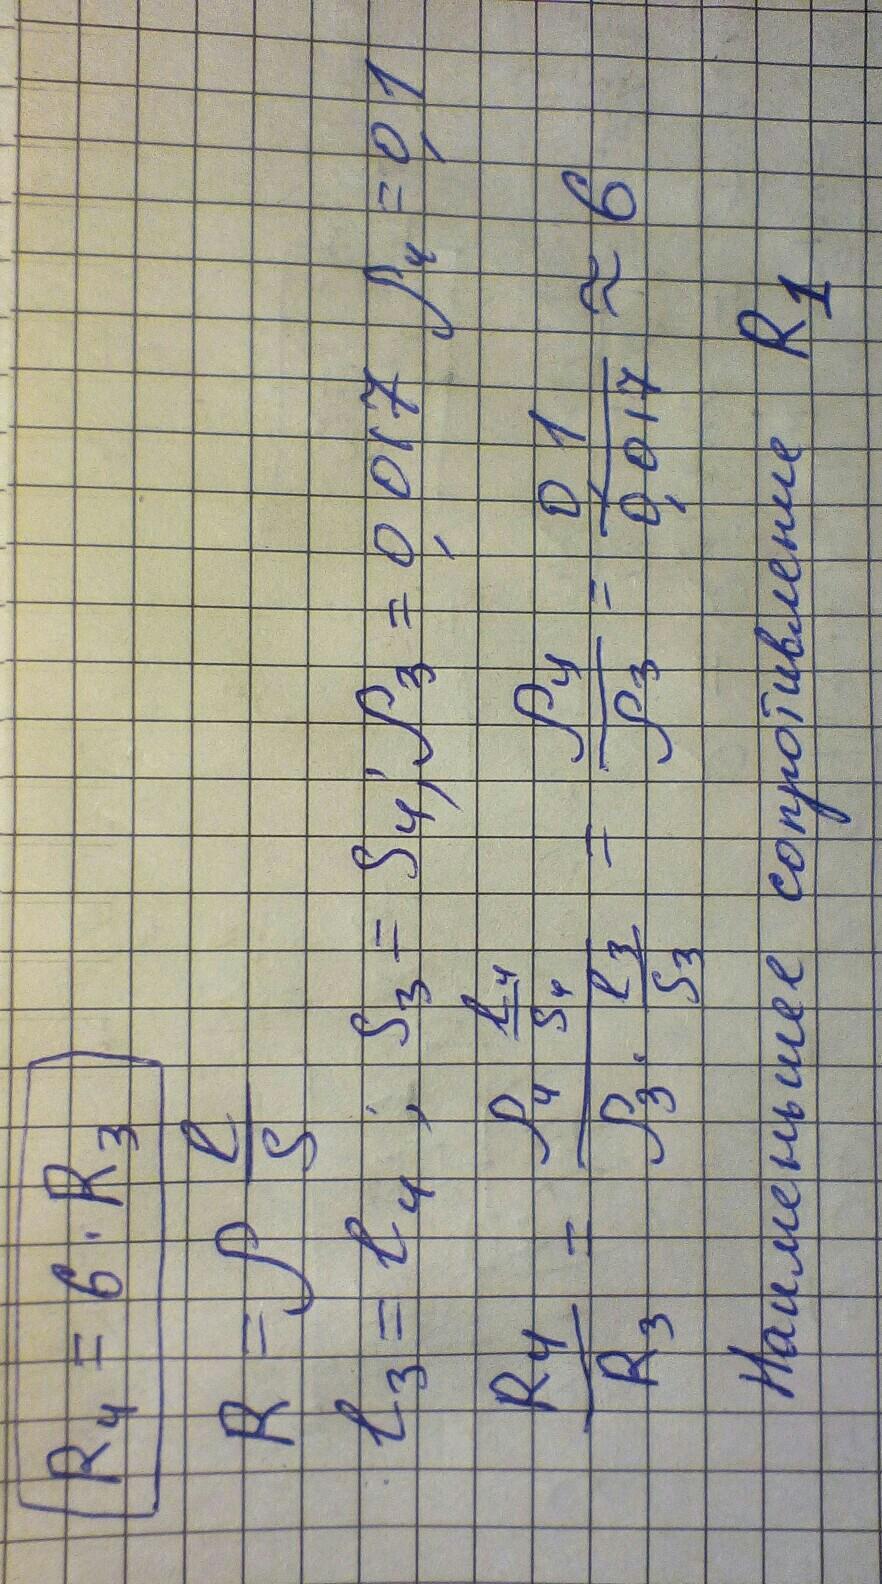 R₄ = 6 · R₃
R = ρ l/S
l₃ = l₄ ; S₃ = S₄; ρ₃ = 0,017 ρ₄ = 0,1
R₄/R₃ = (ρ₄ l₄/S₄)/(ρ₃ · l₃/S₃) = ρ₄/ρ₃ = 0,1/0,017 ≈ 6
Наименьшее сопротивление R1